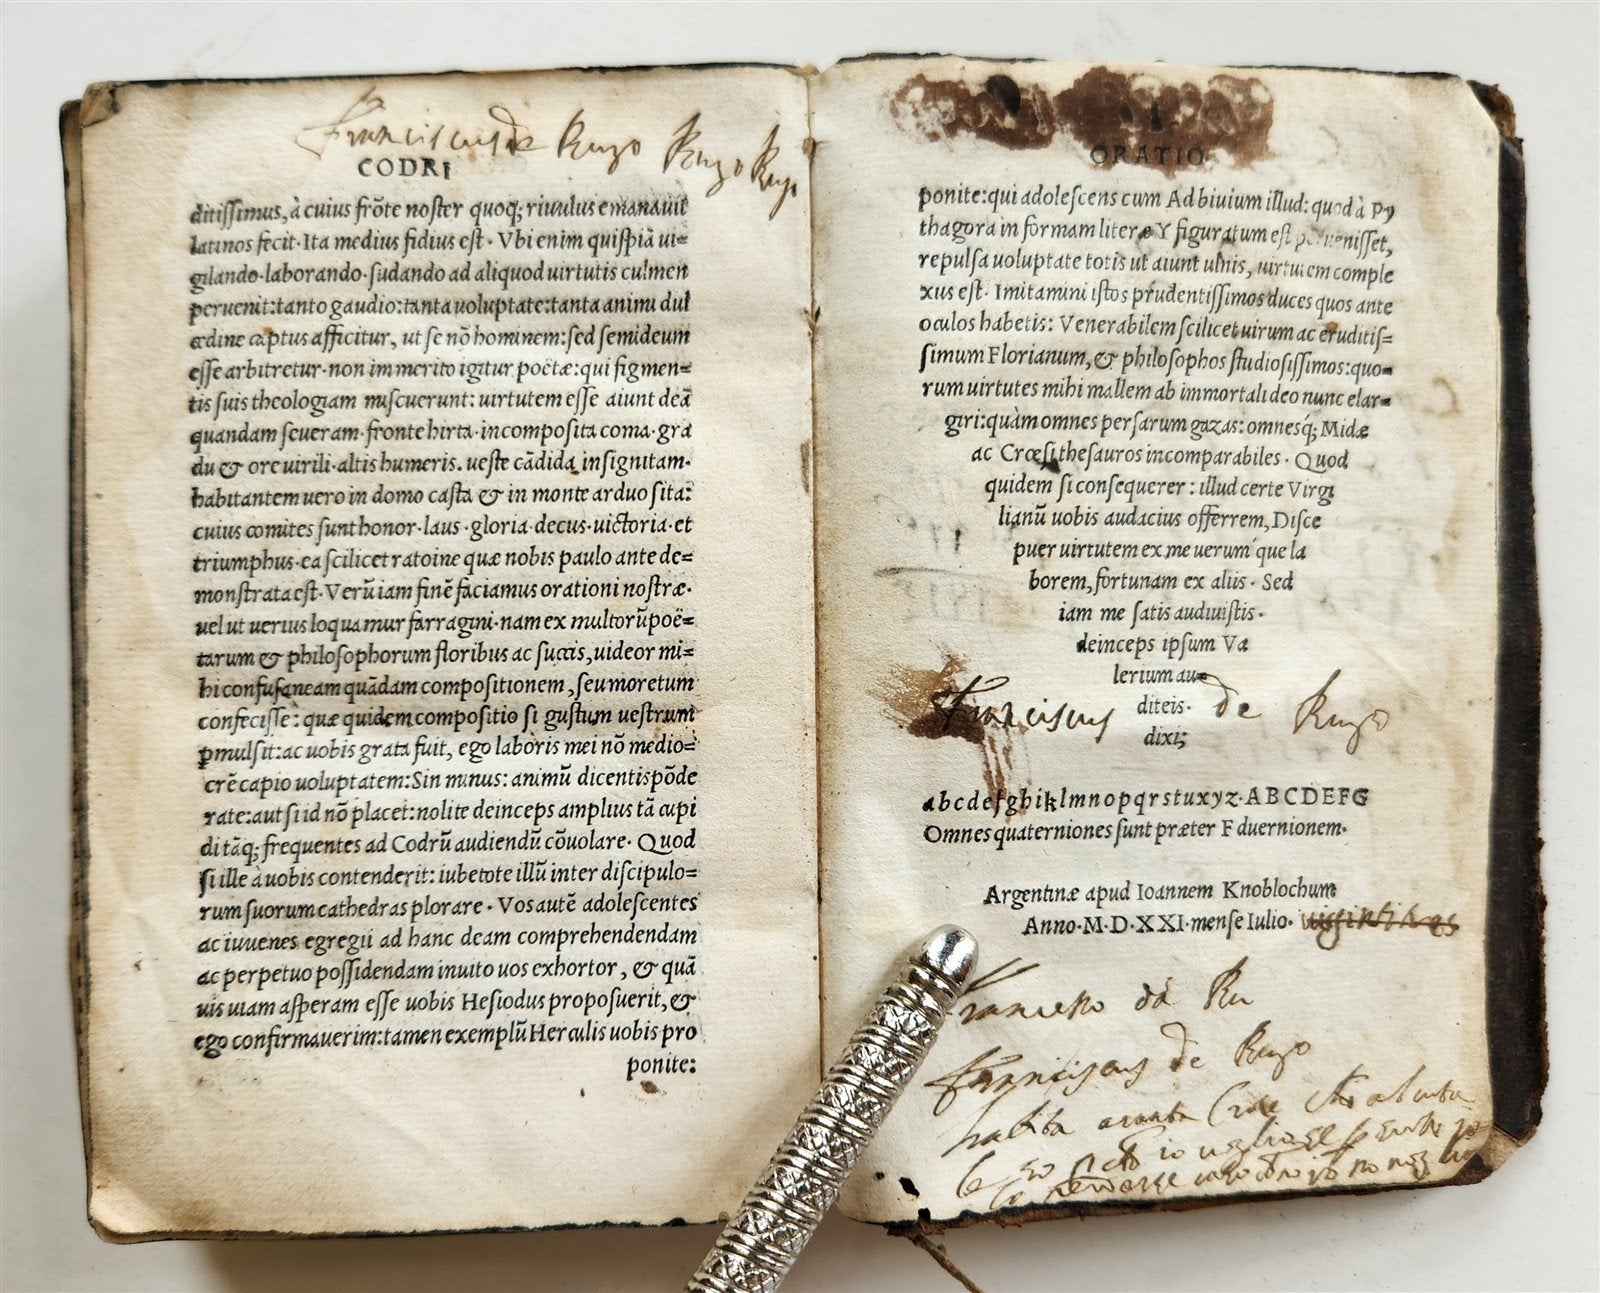 Franciscus de Ruzo Ruzo Ruzo
CODRI
ditissimus, à cuius frōte noster quoq; riuulus emanauit
latinos fecit· Ita medius fidius est· Vbi enim quispiā ui=
gilando·laborando·sudando ad aliquod uirtutis culmen
peruenit:tanto gaudio:tanta uoluptate:tanta animi dul
cedine captus afficitur, ut se nō hominem:sed semideum
esse arbitretur·non immerito igitur poëtæ:qui figmen=
tis suis theologiam miscuerunt: uirtutem esse aiunt deā
quandam seueram·fronte hirta·incomposita coma·gra
du & ore uirili·altis humeris. ueste cādida insignitam·
habitantem uero in domo casta & in monte arduo sita:
cuius comites sunt honor·laus·gloria·decus·uictoria·et
triumphus·ea scilicet ratoine quæ nobis paulo ante de=
monstrata est· Verū iam finē faciamus orationi nostræ·
uel ut uerius loquamur farragini·nam ex multorū poë=
tarum & philosophorum floribus ac succis, uideor mi=
hi confusaneam quādam compositionem, seu moretum
confecisse: quæ quidem compositio si gustum uestrum
pmulsit:ac uobis grata fuit, ego laboris mei nō medio=
crē capio uoluptatem:Sin minus: animū dicentis pōde
rate:aut si id nō placet:nolite deinceps amplius tā cupi
di tāq; frequentes ad Codrū audiendū cōuolare· Quod
si ille à uobis contenderit: iubetote illū inter discipulo=
rum suorum cathedras plorare· Vos autē adolescentes
ac iuuenes egregii ad hanc deam comprehendendam
ac perpetuo possidendam inuito uos exhortor, & quā
uis uiam asperam esse uobis Hesiodus proposuerit, &
ego confirmauerim:tamen exemplū Herculis uobis pro
ponite:
ORATIO·
ponite:qui adolescens cum Ad biuium illud: quod à Py
thagora in formam literæ Y figuratum est peruenisset,
repulsa uoluptate totis ut aiunt ulnis, uirtutem comple
xus est· Imitamini istos prudentissimos duces quos ante
oculos habetis: Venerabilem scilicet uirum ac eruditis=
simum Florianum, & philosophos studiosissimos:quo=
rum uirtutes mihi mallem ab immortali deo nunc elar=
giri:quàm omnes persarum gazas: omnesq; Midæ
ac Crœsi thesauros incomparabiles· Quod
quidem si consequerer: illud certe Virgi
lianū uobis audacius offerrem, Disce
puer uirtutem ex me uerum´que la
borem, fortunam ex aliis· Sed
iam me satis audiuistis·
deinceps ipsum Va
lerium au=
diteis·
Franciscus de Ruzo
dixi;
a b c d e f g h i k l m n o p q r s t u x y z· A B C D E F G
Omnes quaterniones sunt præter F duernionem·
Argentinæ apud Ioannem Knoblochum
Anno·M·D·XXI·mense Iulio·
Francesco da Ru
Franciscus de Ruzo